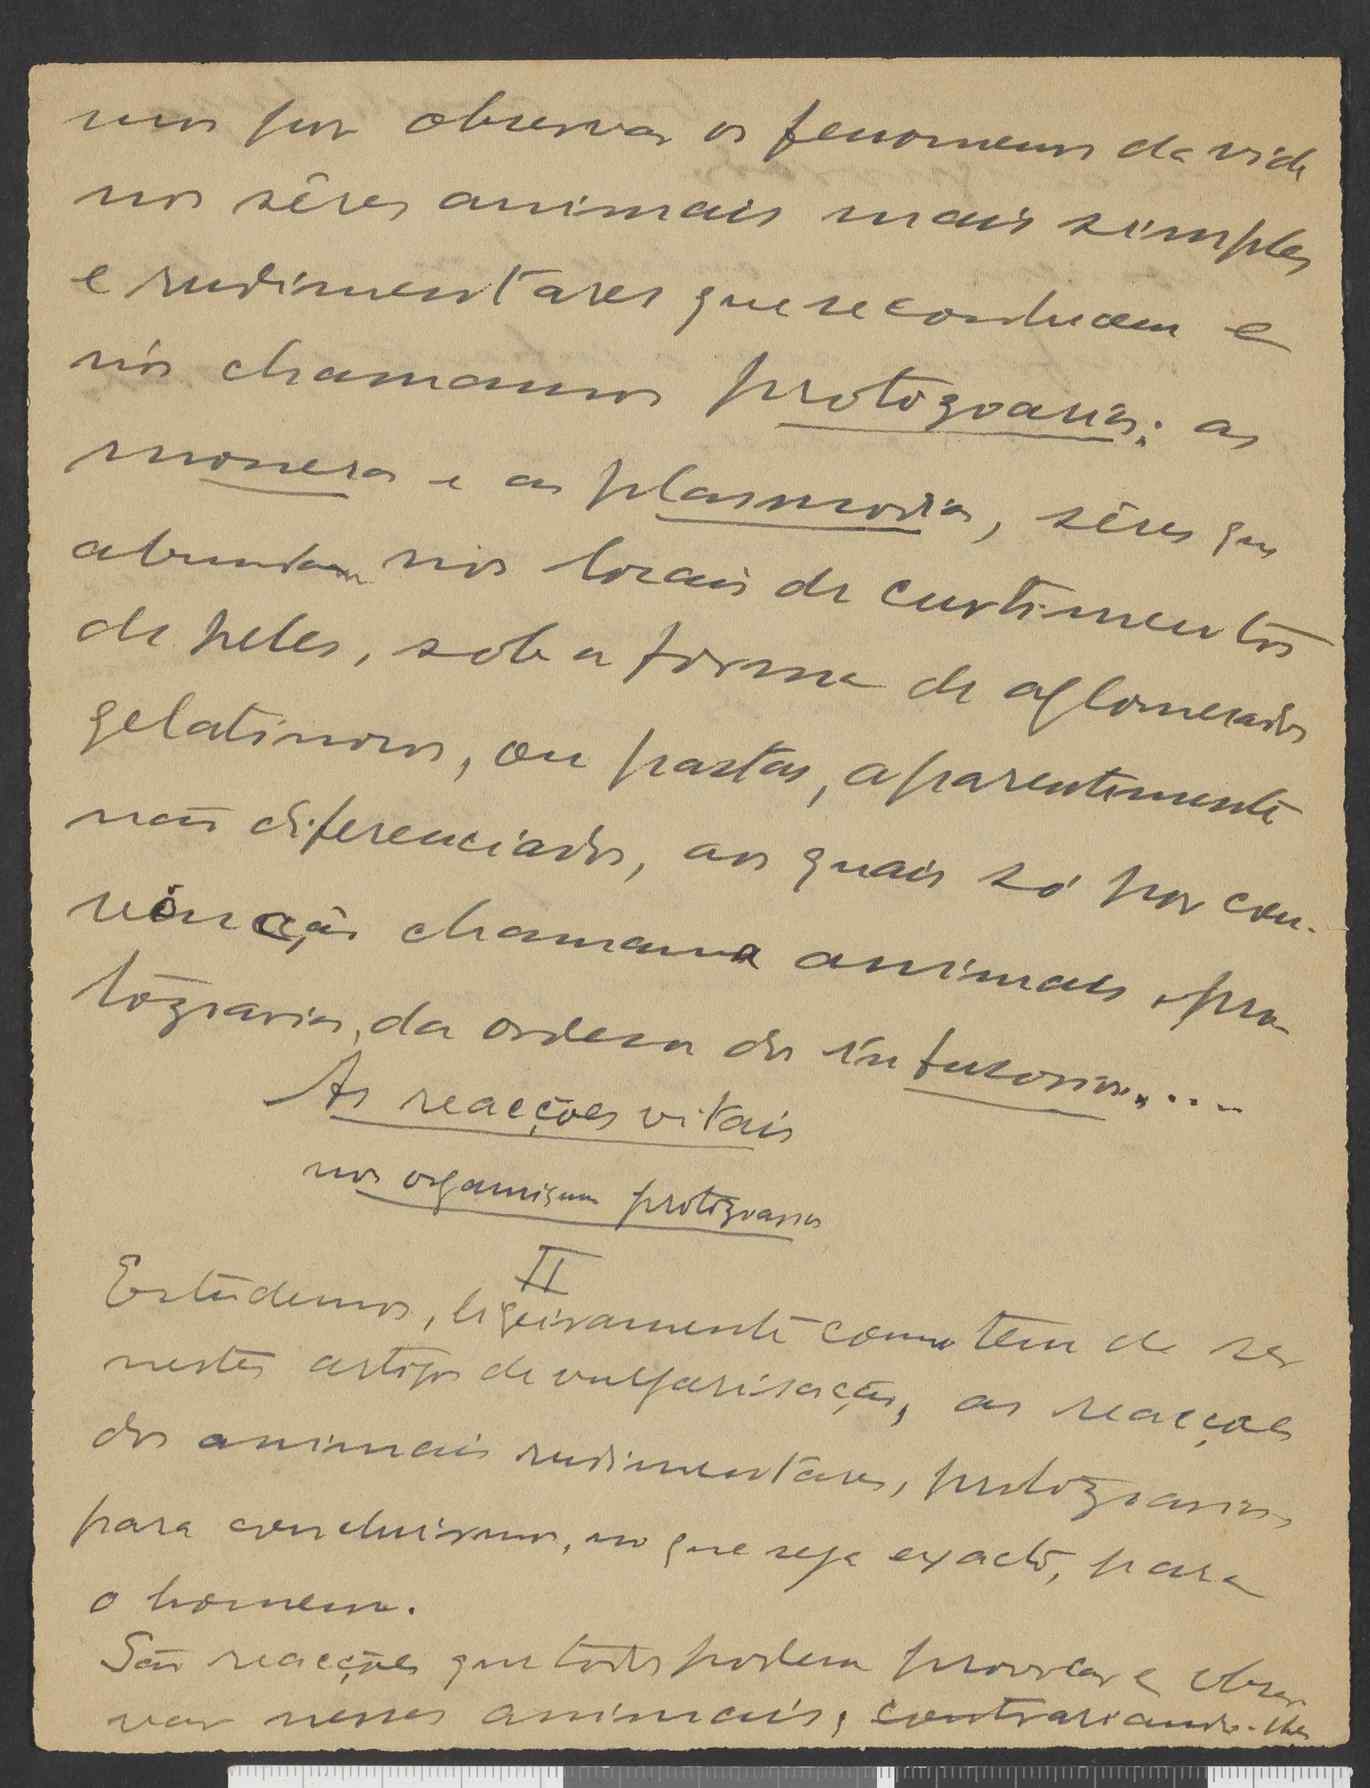 mos por observar os fenomenos da vida
nos sêres animais mais simples
e rudimentares que se conhecem e
nós chamamos protozoarios: as
moneras e as plasmodias, sêres que
abundam nos locais de curtimentos
de peles, sob a forma de aglomerados
gelatinosos, ou pastas, aparentemente
não diferenciados, aos quais só por con-
venção chamamos animais, pro-
tozoarios, da ordem dos infusorios....
As reacções vitais
nos organismos protozoarios
II
Estudemos, ligeiramente como tem de ser
nestes artigos de vulgarisação, as reacções
dos animais rudimentares, protozoarios,
para concluirmos, no que seja exacto, para
o homem.
São reacções que todos podem provocar e obser-
var nesses animais, contrariando-lhes